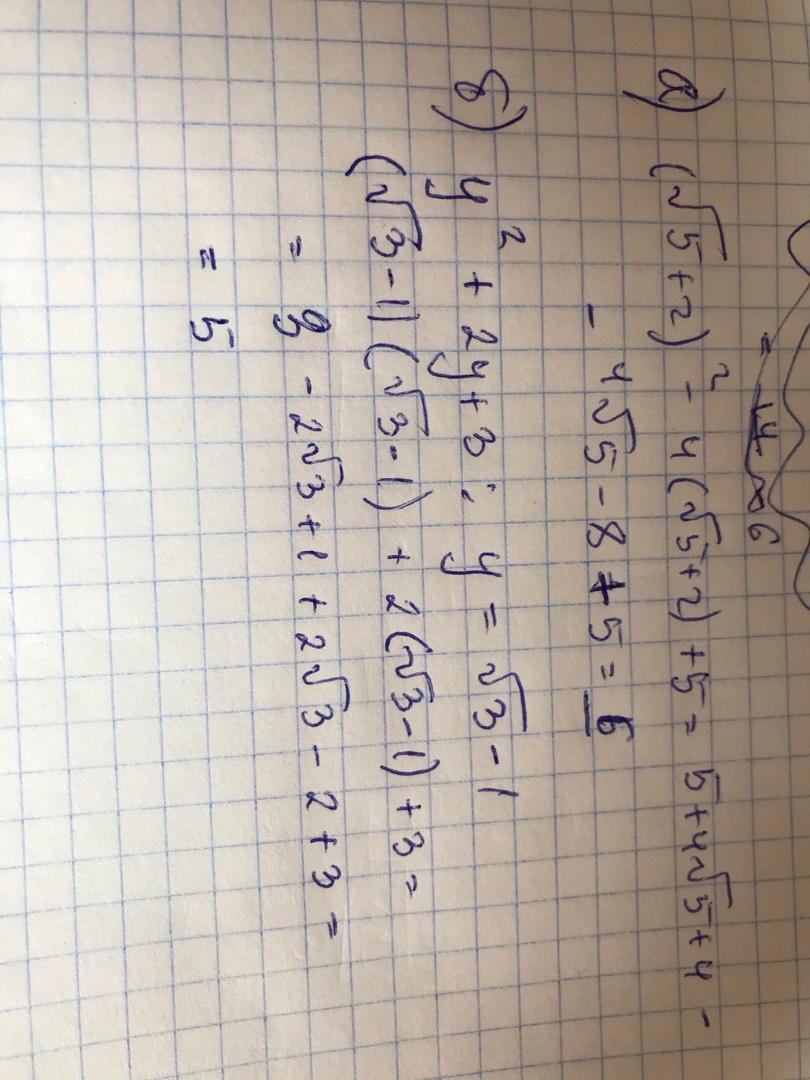 = 6
а) (√5+2)² - 4(√5+2)+5 = 5+4√5+4 -
- 4√5 - 8 + 5 = 6
б) y² + 2y + 3 ; y = √3 - 1
(√3-1)(√3-1) + 2(√3-1) + 3 =
= 3 - 2√3 + 1 + 2√3 - 2 + 3 =
= 5